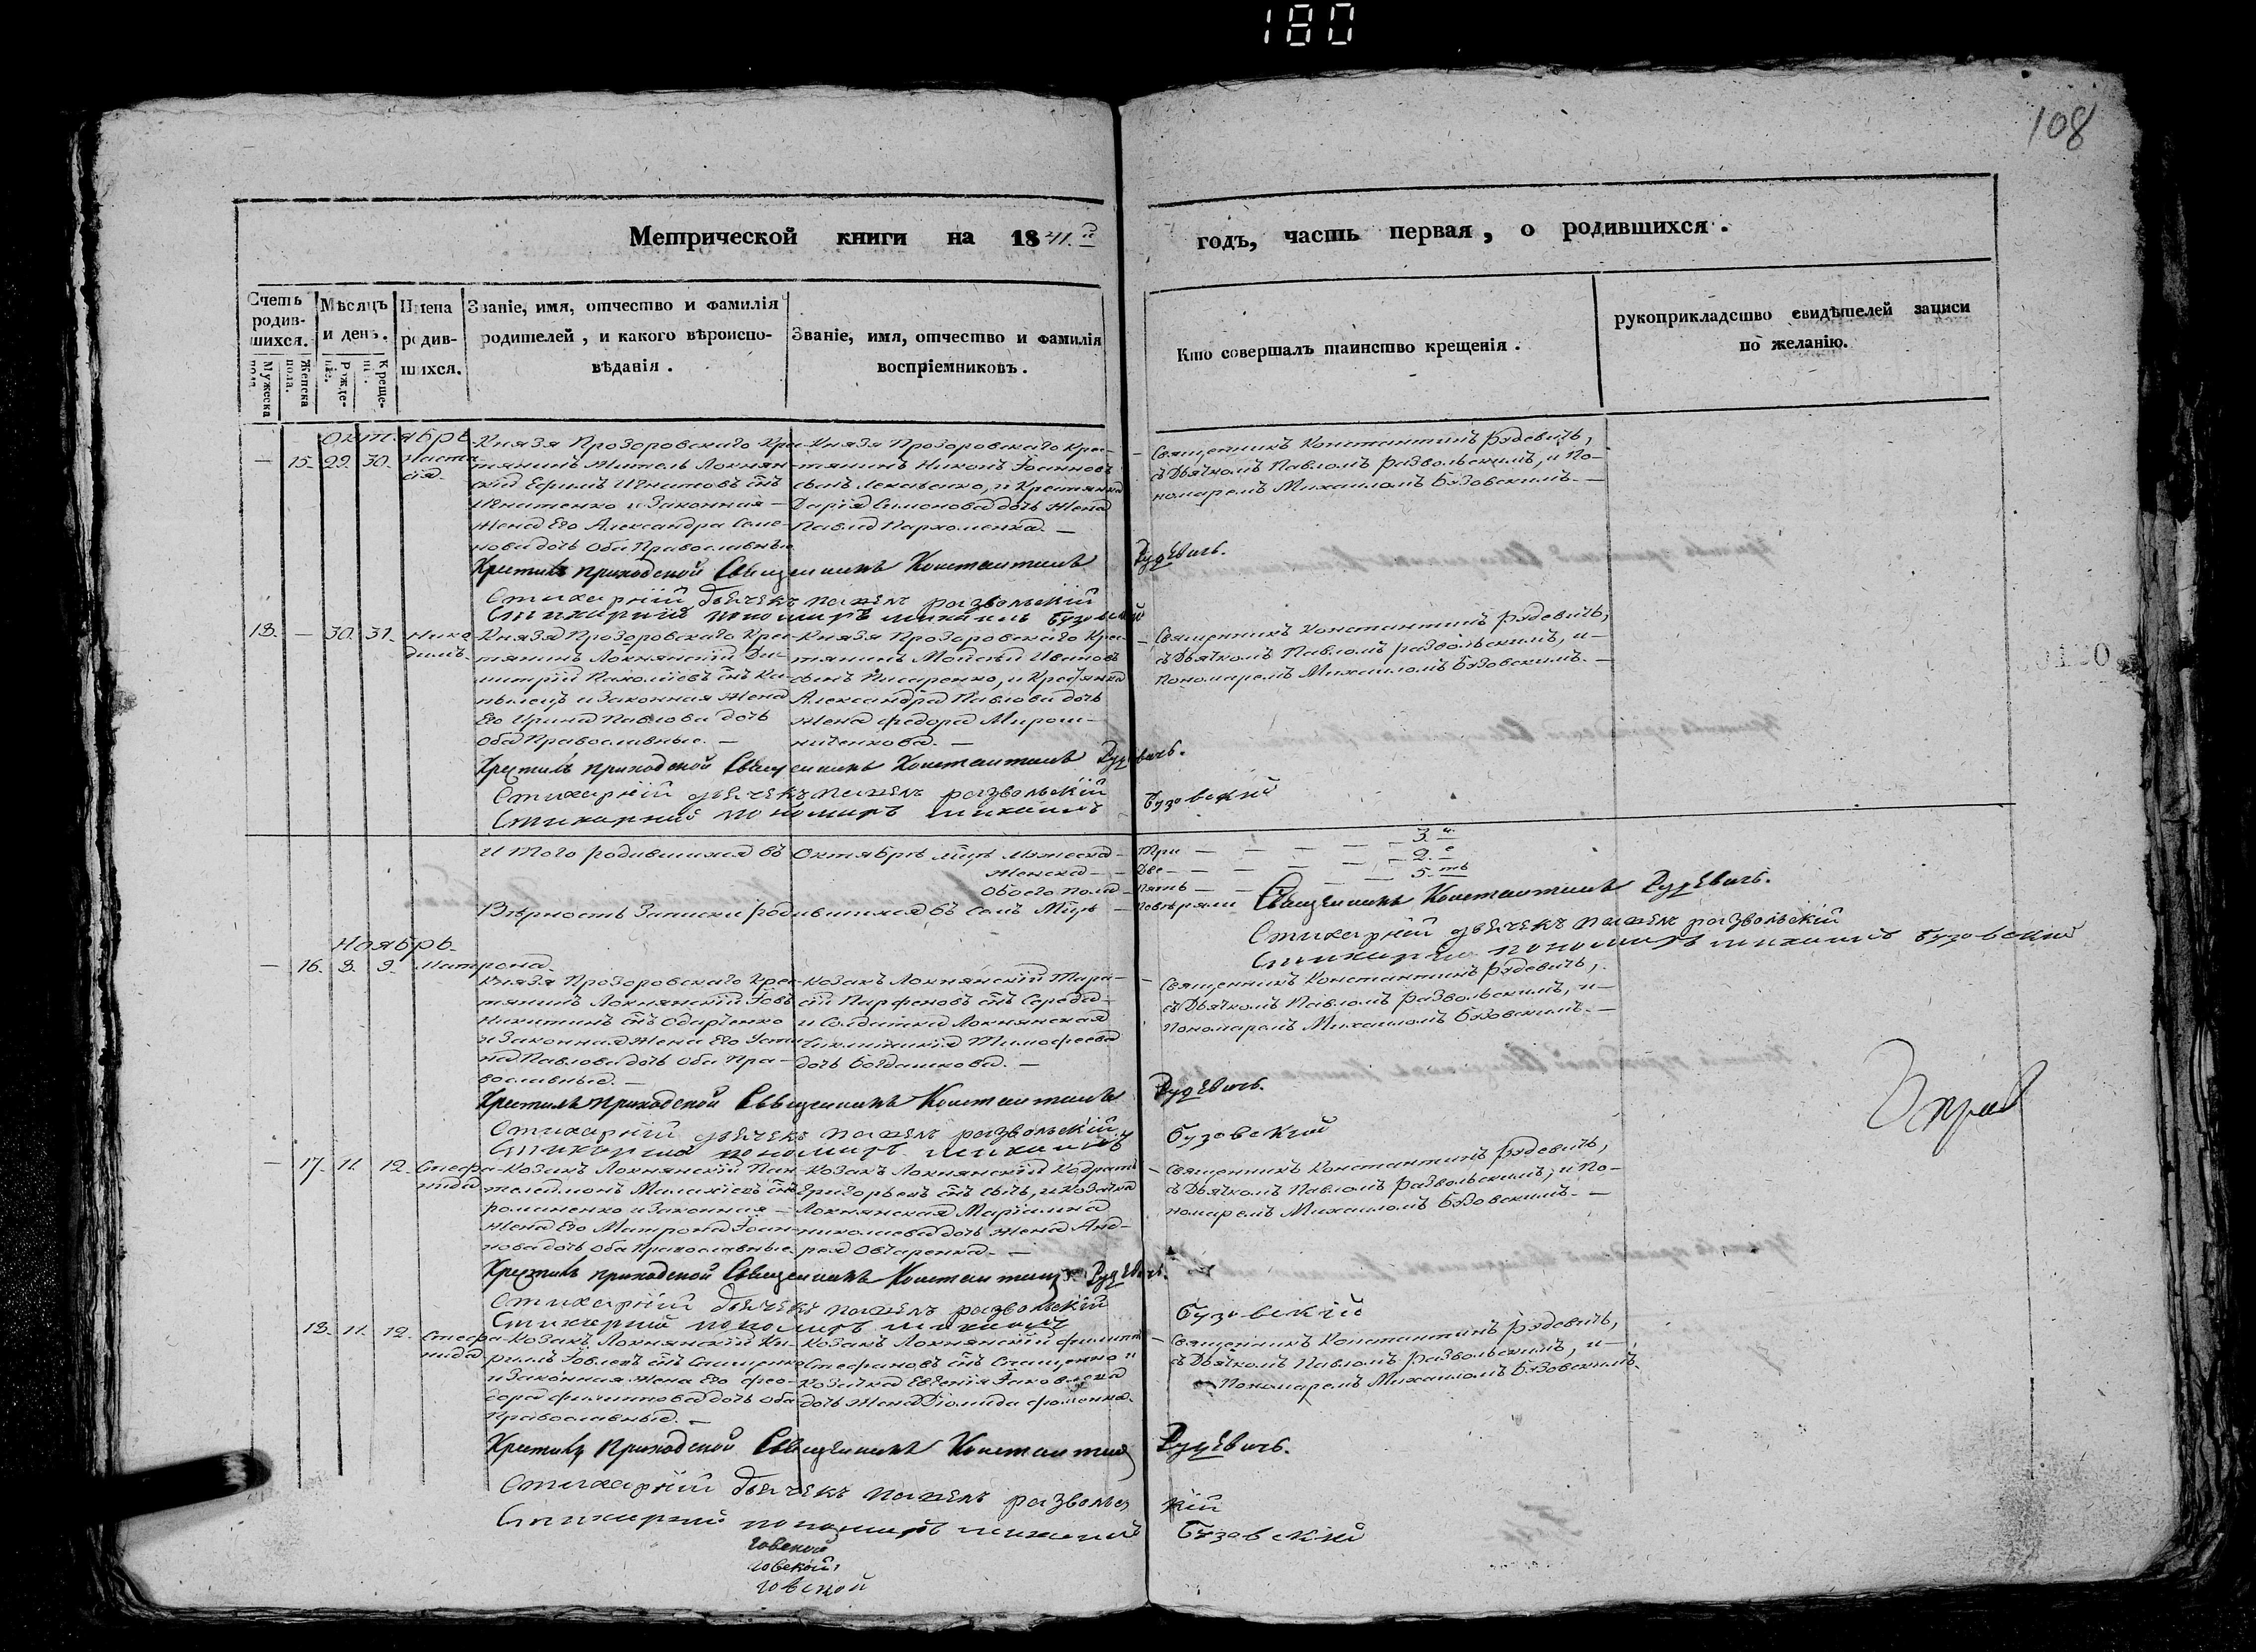 180
108
Метрической книги на 1841.й годъ, часть первая, о родившихся.
Счетъ родив-шихся.
Мѣсяцъ и день.
Имена родив-шихся.
Званіе, имя, отчество и фамилія родителей, и какого вѣроиспо-вѣданія.
Званіе, имя, отчество и фамилія воспріемниковъ.
Кто совершалъ таинство крещенія.
рукоприкладство свидѣтелей записи по желанію.
Мужеска пола.
Женска пола.
Рожде-нія.
Креще-
Октябрь
— 15. 29. 30. Наста-сія.
Князя Прозоровскаго Кре-
стянинъ Житель Локнян-
скій Ефимъ Игнатовъ снъ
Игнатенко и Законная
жена Его Александра Семе-
нова дочь Оба Православные
Князя Прозоровскаго Кре-
стянинъ Никонъ Іоанновъ
сынъ, и Крестянка
Дарія Симонова дочь Жена
Павла Пархоменка. —
Священникъ Константинъ Рудевичъ,
съ Дьячкомъ Павломъ Развольскимъ, и По-
номаремъ Михаиломъ Бузовскимъ. —
Крестилъ приходской Священникъ Константинъ Рудевичъ.
Стихарній дьячекъ павелъ развольскій
Стихарний пономаръ михаилъ бузовский
18. — 30. 31. Нико-димъ.
Князя Прозоровскаго Кре-
стянинъ Локнянскій Ди-
митрій снъ
и Законная Жена
Его Ирина Павлова дочь
Оба Православные. —
Князя Прозоровскаго Кре-
стянинъ Мойсей Ивановъ
сынъ Писаренко, и Крестянка
Александра Павлова дочь
Жена Федора Мирош-
ниченкова. —
Священникъ Константинъ Рудевичъ,
съ Дьячкомъ Павломъ Развольскимъ, и —
Пономаремъ Михаиломъ Бузовскимъ. —
Крестилъ приходской Священникъ Константинъ Рудевичъ.
Стихарній дьячекъ павелъ развольскій
Стихарний пономаръ михаилъ бузовский
Итого родившихся въ Октябрѣ мцѣ мужеска — Три — 3.и
Женска — Две — 2.е
Обоего пола — Пять — 5.ть
Вѣрность Записки родившихся въ семъ Мцѣ — повѣряли Священникъ Константинъ Рудевичъ.
Стихарній дьячекъ павелъ развольскій
Стихарний пономаръ михаилъ бузовский
Ноябрь.
— 16. 8. 9. Матрона.
Князя Прозоровскаго Кре-
стянинъ Локнянскій Іовъ
Никитинъ снъ Одарченко
и Законная Жена Его Усти-
на Павлова дочь Оба Пра-
вославные. —
Козакъ Локнянскій Тара-
сій Парфеновъ снъ Середа
и Солдатка Локнянская
Тимофеева
дочь Богдашкова. —
Священникъ Константинъ Рудевичъ,
съ Дьячкомъ Павломъ Развольскимъ, и —
Пономаремъ Михаиломъ Бузовскимъ. —
Крестилъ приходской Священникъ Константинъ Рудевичъ.
Стихарній дьячекъ павелъ развольскій
Стихарний пономаръ михаилъ бузовский
— 17. 11. 12. Стефа-нида
Козакъ Локнянскій Пан-
телеймонъ Малахіевъ снъ
романенко и Законная —
Жена Его Матрона Іоан-
нова дочь Оба Православные.
Козакъ Локнянскій Кодратъ
Григорьевъ снъ Сычъ, и Козачка
Локнянская Маріанна
николаева дочь Жена Анд-
рея Овчаренка. —
Священникъ Константинъ Рудевичъ,
съ Дьячкомъ Павломъ Развольскимъ, и По-
номаремъ Михаиломъ Бузовскимъ. —
Крестилъ приходской Священникъ Константинъ Рудевичъ.
Стихарній дьячекъ павелъ развольскій
Стихарний пономаръ михаилъ бузовскій
18. 11. 12. Стефа-нида
Козакъ Локнянскій Ки-
рилъ Іовлевъ снъ Стаценко
и Законная жена Его Фео-
дора филиппова дочь Оба
Православные. —
Козакъ Локнянскій филиппъ
Стефановъ снъ Стаценко и
Козачка Евгенія Яковлева
дочь Жена Діомида фоменка.
Священникъ Константинъ Рудевичъ,
съ Дьячкомъ Павломъ Развольскимъ, и —
Пономаремъ Михаиломъ Бузовскимъ.
Крестилъ Приходской Священникъ Константинъ Рудевичъ.
Стихарній дьячекъ павелъ развольскій
Стихарний пономаръ михаилъ бузовский
говской
говской
говской